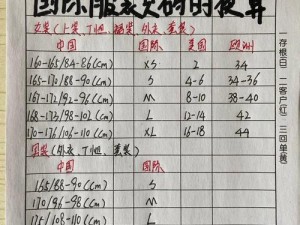 国际服装尺码的换算
女装（上装、T恤、裙装、外衣、套装）
中国 国际 美国 欧洲
160-165/84-86(cm) XS 2 34
165-170/88-90(cm) S 4-6 34-36
167-172/92-96(cm) M 8-10 38-40
168-173/98-102(cm) L 12-14 42
170-176/106-110(cm) XL 16-18 44
男装（外衣、T恤、套装）
中国 国际
165/88-90(cm) S
170/96-98(cm) M
175/108-110(cm) L
一存根(白) 二客户(红) 三回单(黄)